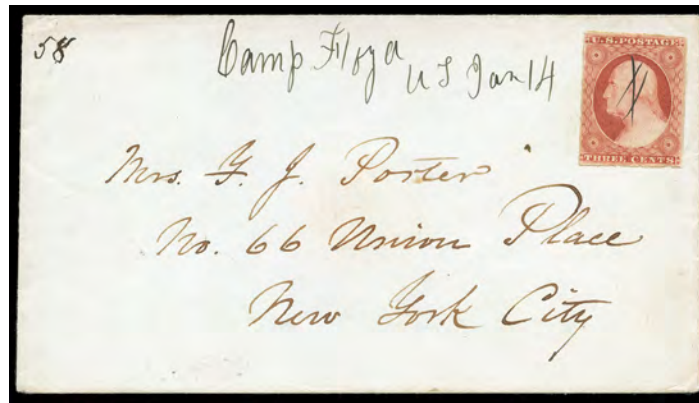 58
Camp Floyd
U T Jan 14
U.S. POSTAGE
THREE CENTS
Mrs. F. J. Porter
No. 66 Union Place
New York City